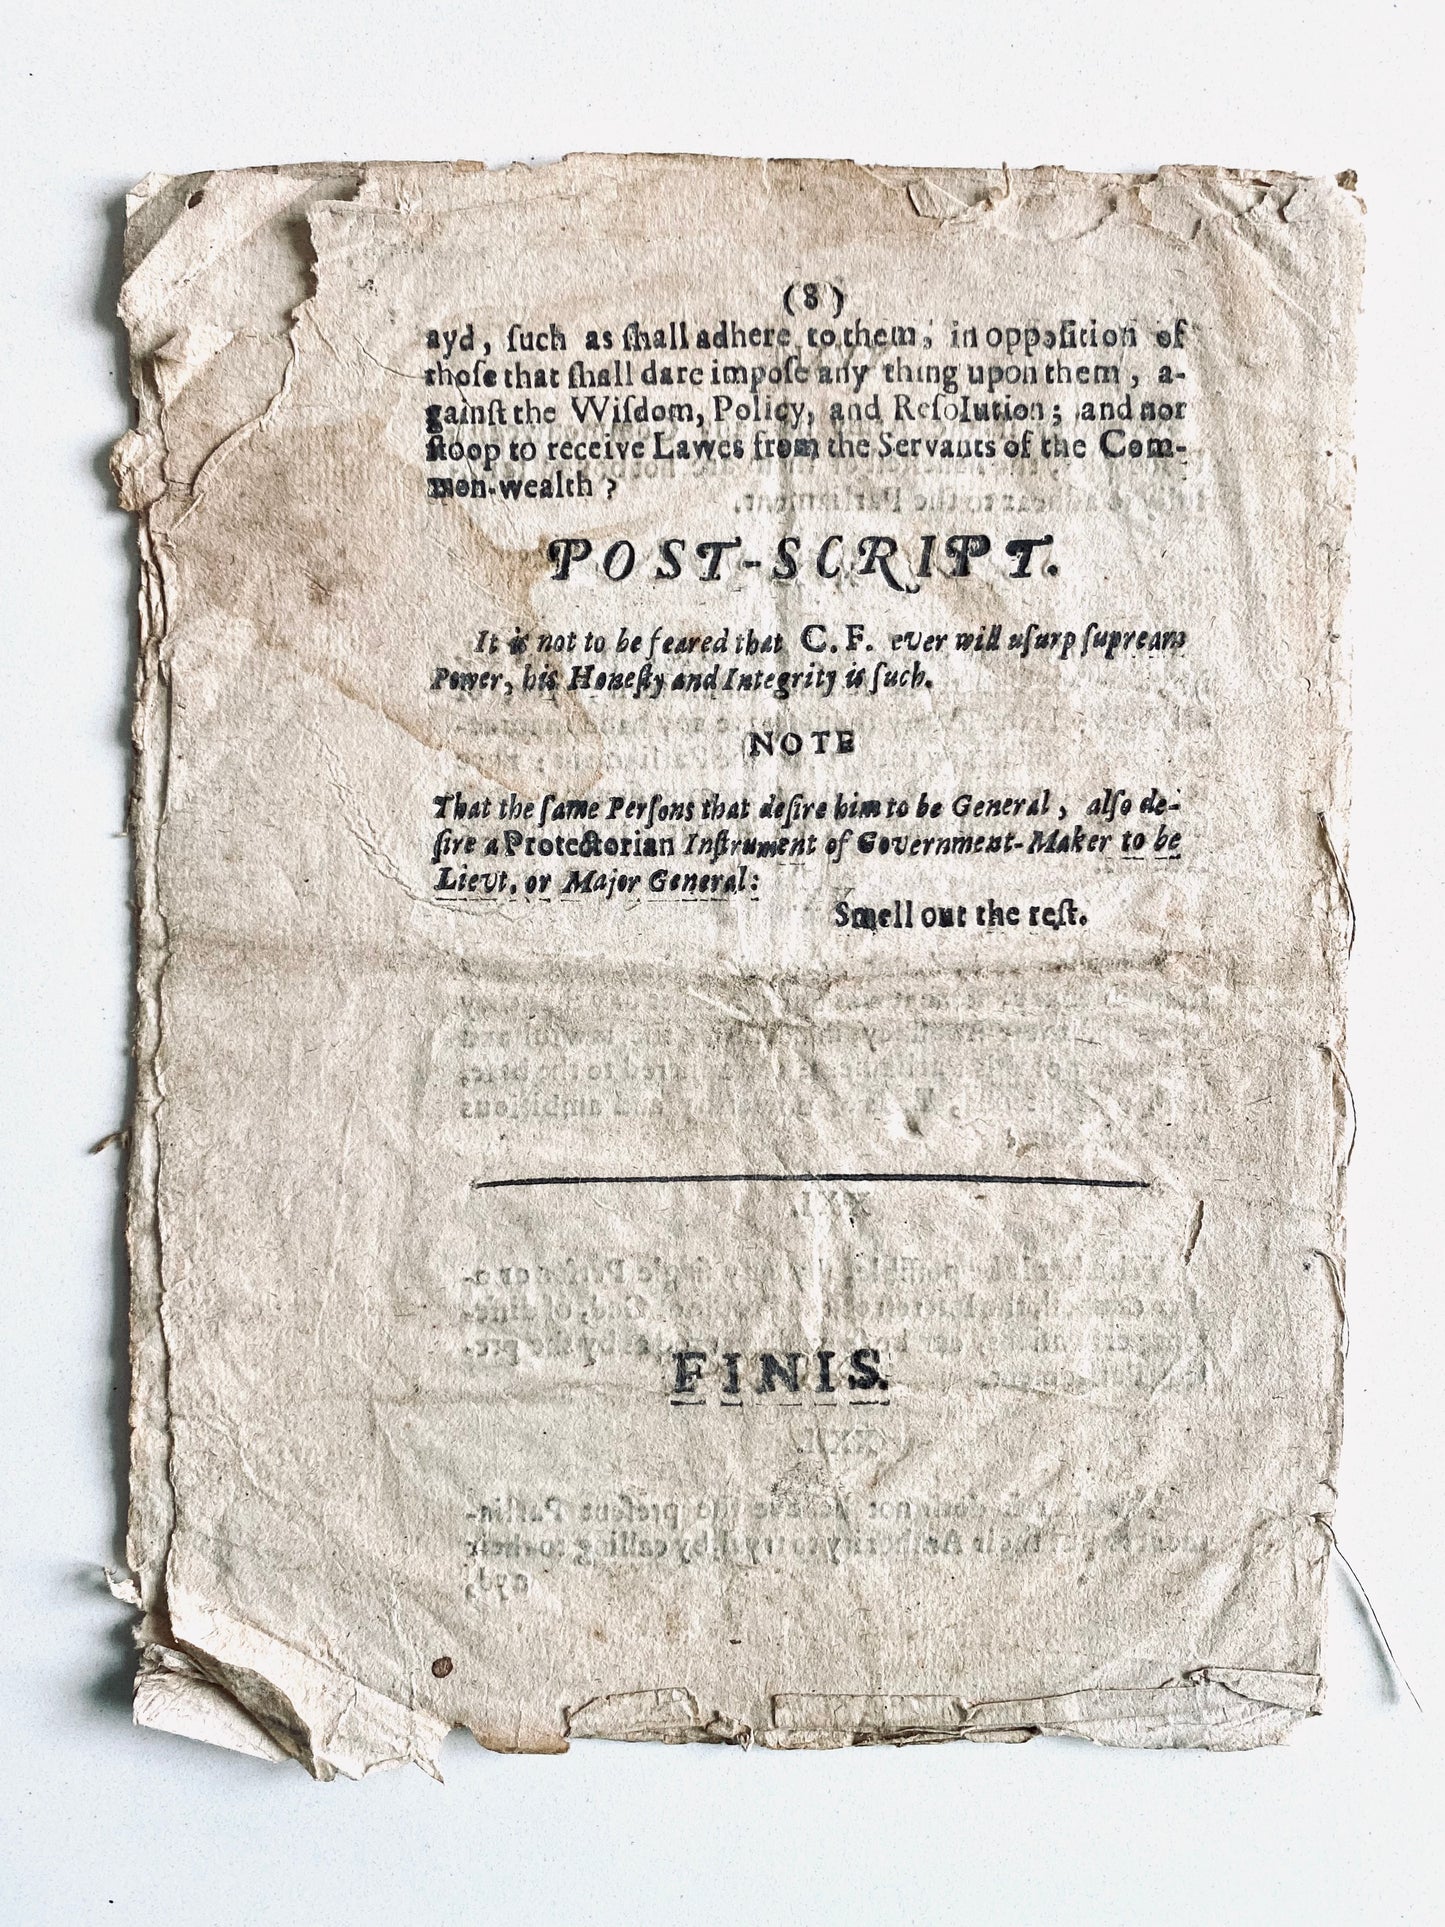 (8)
ayd, ſuch as ſhall adhere to them, in oppoſition of
thoſe that ſhall dare impoſe any thing upon them, a-
gainſt the Wiſdom, Policy, and Reſolution; and not
ſtoop to receive Lawes from the Servants of the Com-
mon-wealth?
POST-SCRIPT.
It is not to be feared that C. F. ever will uſurp ſupream
Power, his Honeſty and Integrity is ſuch.
NOTE
That the ſame Perſons that deſire him to be General, alſo de-
ſire a Protectorian Inſtrument of Government-Maker to be
Lieut. or Major General:
Smell out the reſt.
FINIS.